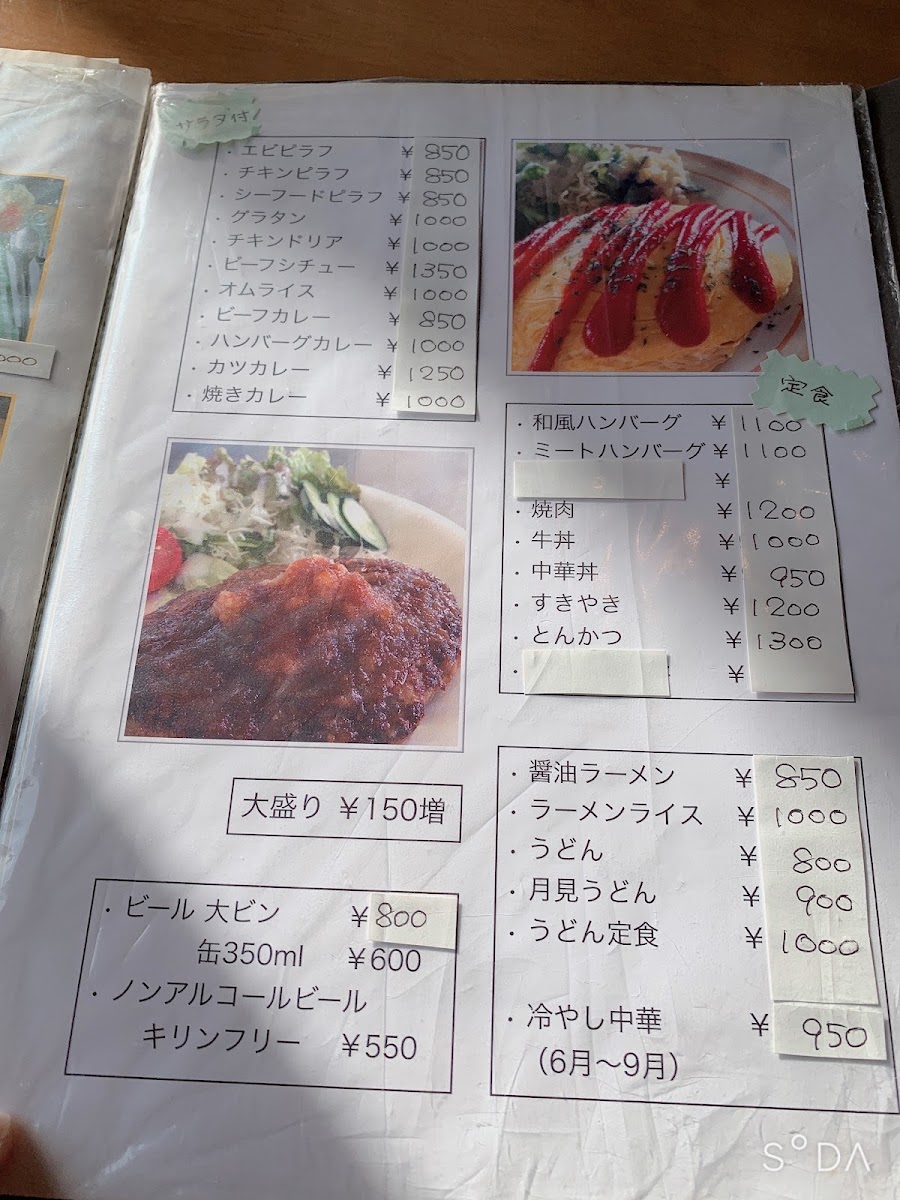 サラダ付
・エビピラフ ¥850
・チキンピラフ ¥850
・シーフードピラフ ¥850
・グラタン ¥1000
・チキンドリア ¥1000
・ビーフシチュー ¥1350
・オムライス ¥1000
・ビーフカレー ¥850
・ハンバーグカレー ¥1000
・カツカレー ¥1250
・焼きカレー ¥1000
定食
・和風ハンバーグ ¥1100
・ミートハンバーグ ¥1100
・ ¥
・焼肉 ¥1200
・牛丼 ¥1000
・中華丼 ¥950
・すきやき ¥1200
・とんかつ ¥1300
・ ¥
大盛り ¥150増
・ビール 大ビン ¥800
缶350ml ¥600
・ノンアルコールビール
キリンフリー ¥550
・醤油ラーメン ¥850
・ラーメンライス ¥1000
・うどん ¥800
・月見うどん ¥900
・うどん定食 ¥1000
・冷やし中華 ¥950
（6月〜9月）
SODA